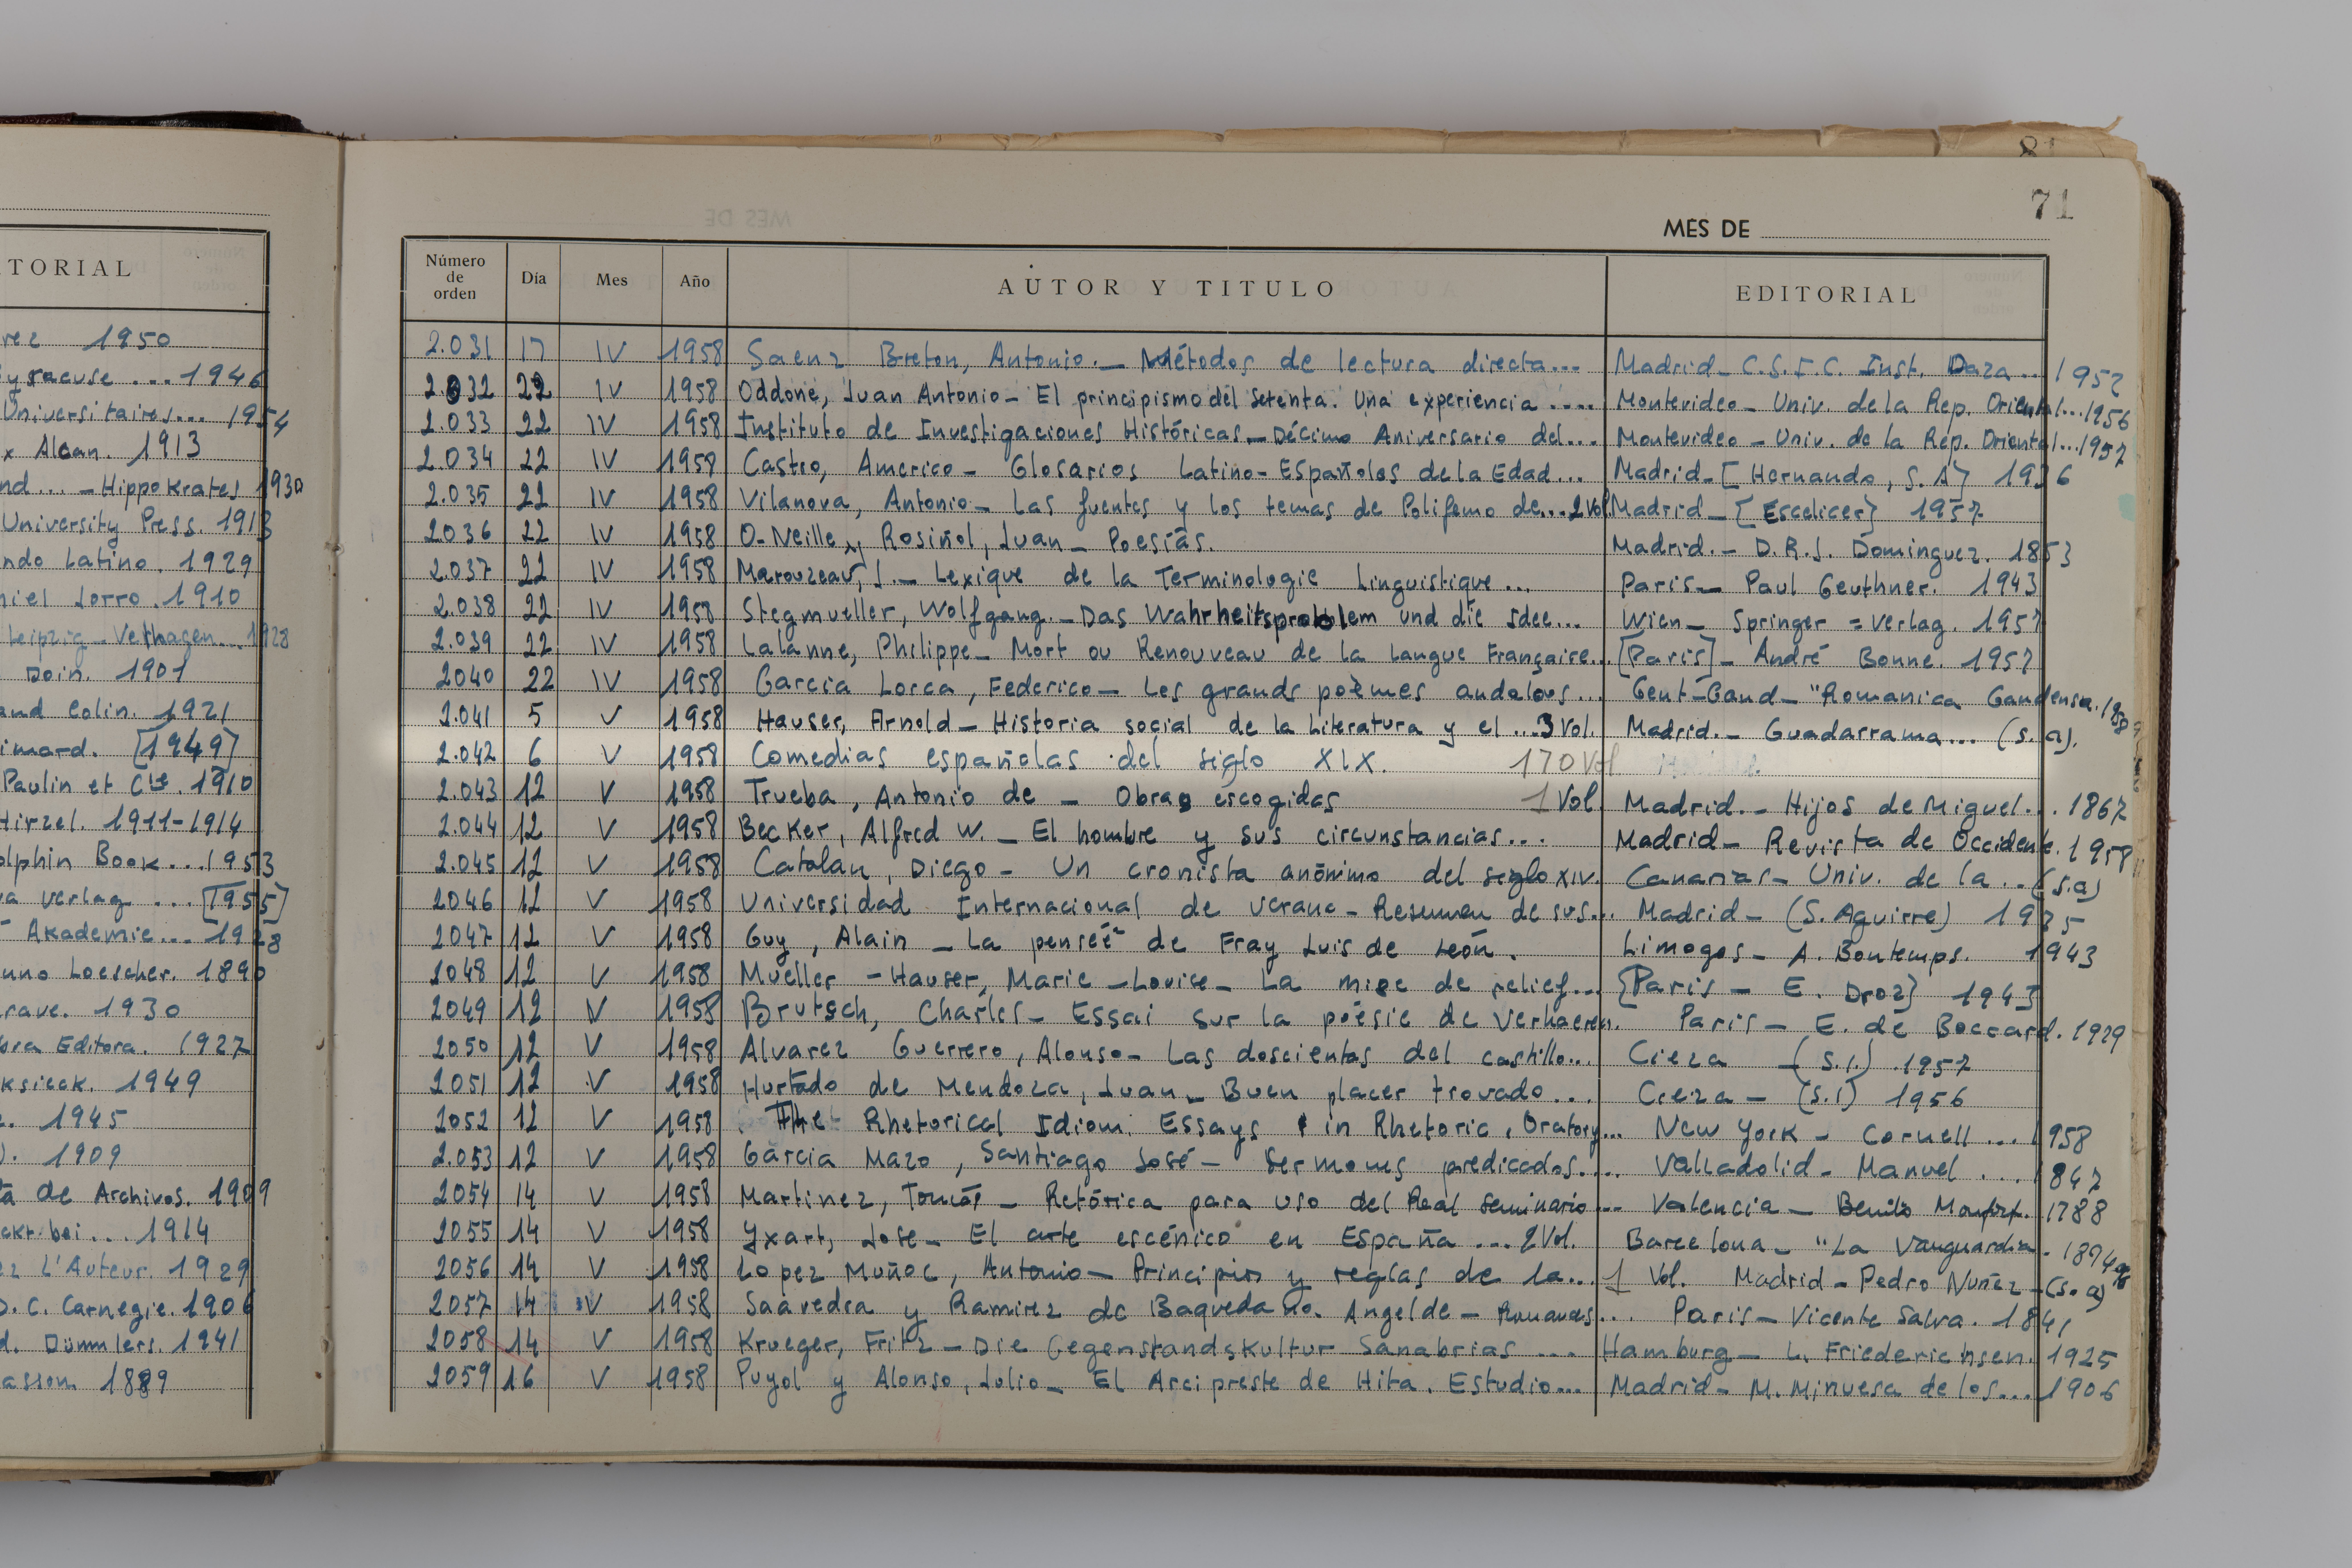 81
71
MES DE
TORIAL
1950
... 1946
Universitaires... 1954
Alcan. 1913
... - Hippokrates 1930
University Press. 1913
Latino. 1929
Jorro. 1910
Leipzig - Velhagen... 1928
Doin. 1901
Colin. 1921
[1949]
Paulin et Cie. 1910
Hirzel. 1911-1914
Book... 1953
Verlag ... [1955]
Akademie... 1928
Loescher. 1890
1930
Editora. 1927
1949
1945
1909
de Archivos. 1909
... 1914
L'Auteur. 1929
D. C. Carnegie. 1906
Dümmlers. 1941
1889
Número de orden Día Mes Año AUTOR Y TITULO EDITORIAL
2.031 17 IV 1958 Saenz Breton, Antonio. - Métodos de lectura directa... Madrid - C.S.I.C. Inst. Daza... 1952
2.032 22 IV 1958 Oddone, Juan Antonio - El principismo del Setenta. Una experiencia .... Montevideo - Univ. de la Rep. Oriental...1956
2.033 22 IV 1958 Instituto de Investigaciones Históricas - Décimo Aniversario del.... Montevideo - Univ. de la Rep. Oriental...1957
2.034 22 IV 1958 Castro, Americo - Glosarios Latino-Españoles de la Edad... Madrid - [Hernando, S. A] 1936
2.035 22 IV 1958 Vilanova, Antonio - Las fuentes y los temas de Polifemo de... 2 Vol. Madrid - [Escelicer] 1957
2036 22 IV 1958 O-Neille y Rosiñol, Juan - Poesías. Madrid. - D.R.J. Dominguez. 1853
2.037 22 IV 1958 Marouzeau, J. - Lexique de la Terminologie Linguistique... Paris - Paul Geuthner. 1943
2.038 22 IV 1958 Stegmueller, Wolfgang. - Das Wahrheitsproblem und die Idee... Wien - Springer = Verlag. 1957
2.039 22 IV 1958 Lalanne, Philippe - Mort ou Renouveau de la Langue Française... [Paris] - André Bonne. 1957
2040 22 IV 1958 Garcia Lorca, Federico - Les grands poèmes andalous... Gent-Gand - "Romanica Gandensa.
2.041 5 V 1958 Hauser, Arnold - Historia social de la Literatura y el ... 3 Vol. Madrid. - Guadarrama... (s. a).
2.042 6 V 1958 Comedias españolas del siglo XIX. 170 Vol
2.043 12 V 1958 Trueba, Antonio de - Obras escogidas 1 Vol Madrid. - Hijos de Miguel... 1867
2.044 12 V 1958 Becker, Alfred W. - El hombre y sus circunstancias... Madrid - Revista de Occidente. 1958
2.045 12 V 1958 Catalan, Diego - Un cronista anónimo del siglo XIV. Canarias - Univ. de la ... (s.a)
2046 12 V 1958 Universidad Internacional de verano - Resumen de sus... Madrid - (S. Aguirre) 1935
2047 12 V 1958 Guy, Alain - La penseé de Fray Luis de León. Limoges - A. Bontemps. 1943
2048 12 V 1958 Mueller - Hauser, Marie - Louise - La mise de relief... [Paris - E. Droz] 1943
2049 12 V 1958 Brutsch, Charles - Essai sur la poésie de Verhaeren. Paris - E. de Boccard. 1929
2050 12 V 1958 Alvarez Guerrero, Alonso - Las doscientas del castillo... Cieza - (s.l.) 1957
2051 12 V 1958 Hurtado de Mendoza, Juan - Buen placer trovado... Cieza - (s.l) 1956
2052 12 V 1958 The Rhetorical Idiom. Essays in Rhetoric, Oratory... New York - Cornell ... 1958
2.053 12 V 1958 Garcia Mazo, Santiago José - Sermones predicados.... Valladolid - Manuel ... 1847
2054 14 V 1958 Martinez, Tomás - Retórica para uso del Real seminario... Valencia - Benito Monfort. 1788
2055 14 V 1958 Yxart, Jose - El arte escénico en España ... 2 Vol. Barcelona - "La Vanguardia. 1894-96
2056 14 V 1958 Lopez Muñoz, Antonio - Principios y reglas de la... 1 Vol. Madrid - Pedro Nuñez - (s. a)
2057 14 V 1958 Saavedra y Ramirez de Baquedano. Angel de - Romances... Paris - Vicente Salva. 1841
2058 14 V 1958 Krueger, Fritz - Die Gegenstandskultur Sanabrias ... Hamburg - L. Friederichsen. 1925
2059 16 V 1958 Puyol y Alonso, Julio - El Arcipreste de Hita. Estudio... Madrid - M. Minuesa de los... 1906